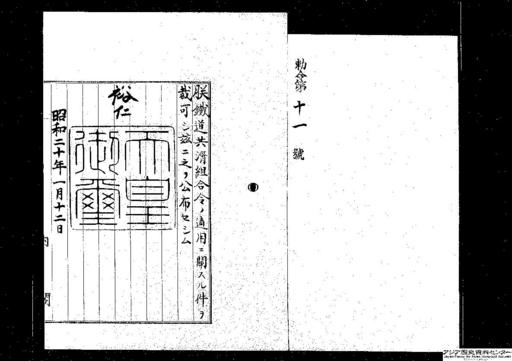 勅令第十一號
朕鐵道共濟組合令ノ適用ニ關スル件ヲ
裁可シ茲ニ之ヲ公布セシム
裕仁
天皇御璽
昭和二十年一月十二日
内閣
アジア歴史資料センター